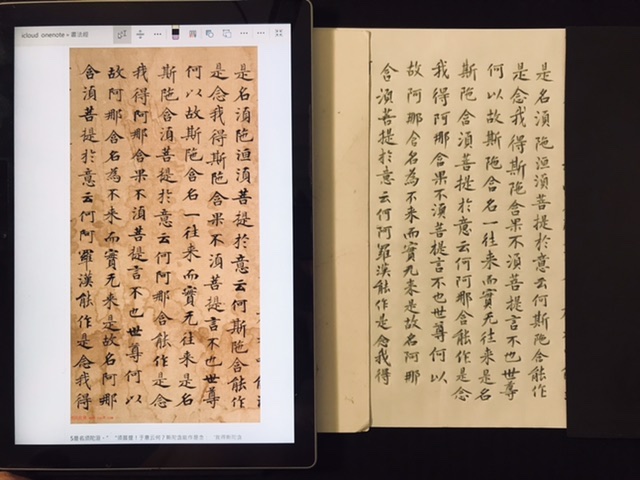 icloud onenote
是名湏陁洹湏菩提於意云何斯陁含能作
是念我得斯陁含果不湏菩提言不也世尊
何以故斯陁含名一往来而實无往来是名
斯陁含湏菩提於意云何阿那含能作是念
我得阿那含果不湏菩提言不也世尊何以
故阿那含名為不来而實无来是故名阿那
含湏菩提於意云何阿羅漢能作是念我得
是名湏陁洹湏菩提於意云何斯陁含能作
是念我得斯陁含果不湏菩提言不也世尊
何以故斯陁含名一往来而實无往来是名
斯陁含湏菩提於意云何阿那含能作是念
我得阿那含果不湏菩提言不也世尊何以
故阿那含名為不来而實无来是故名阿那
含湏菩提於意云何阿羅漢能作是念我得